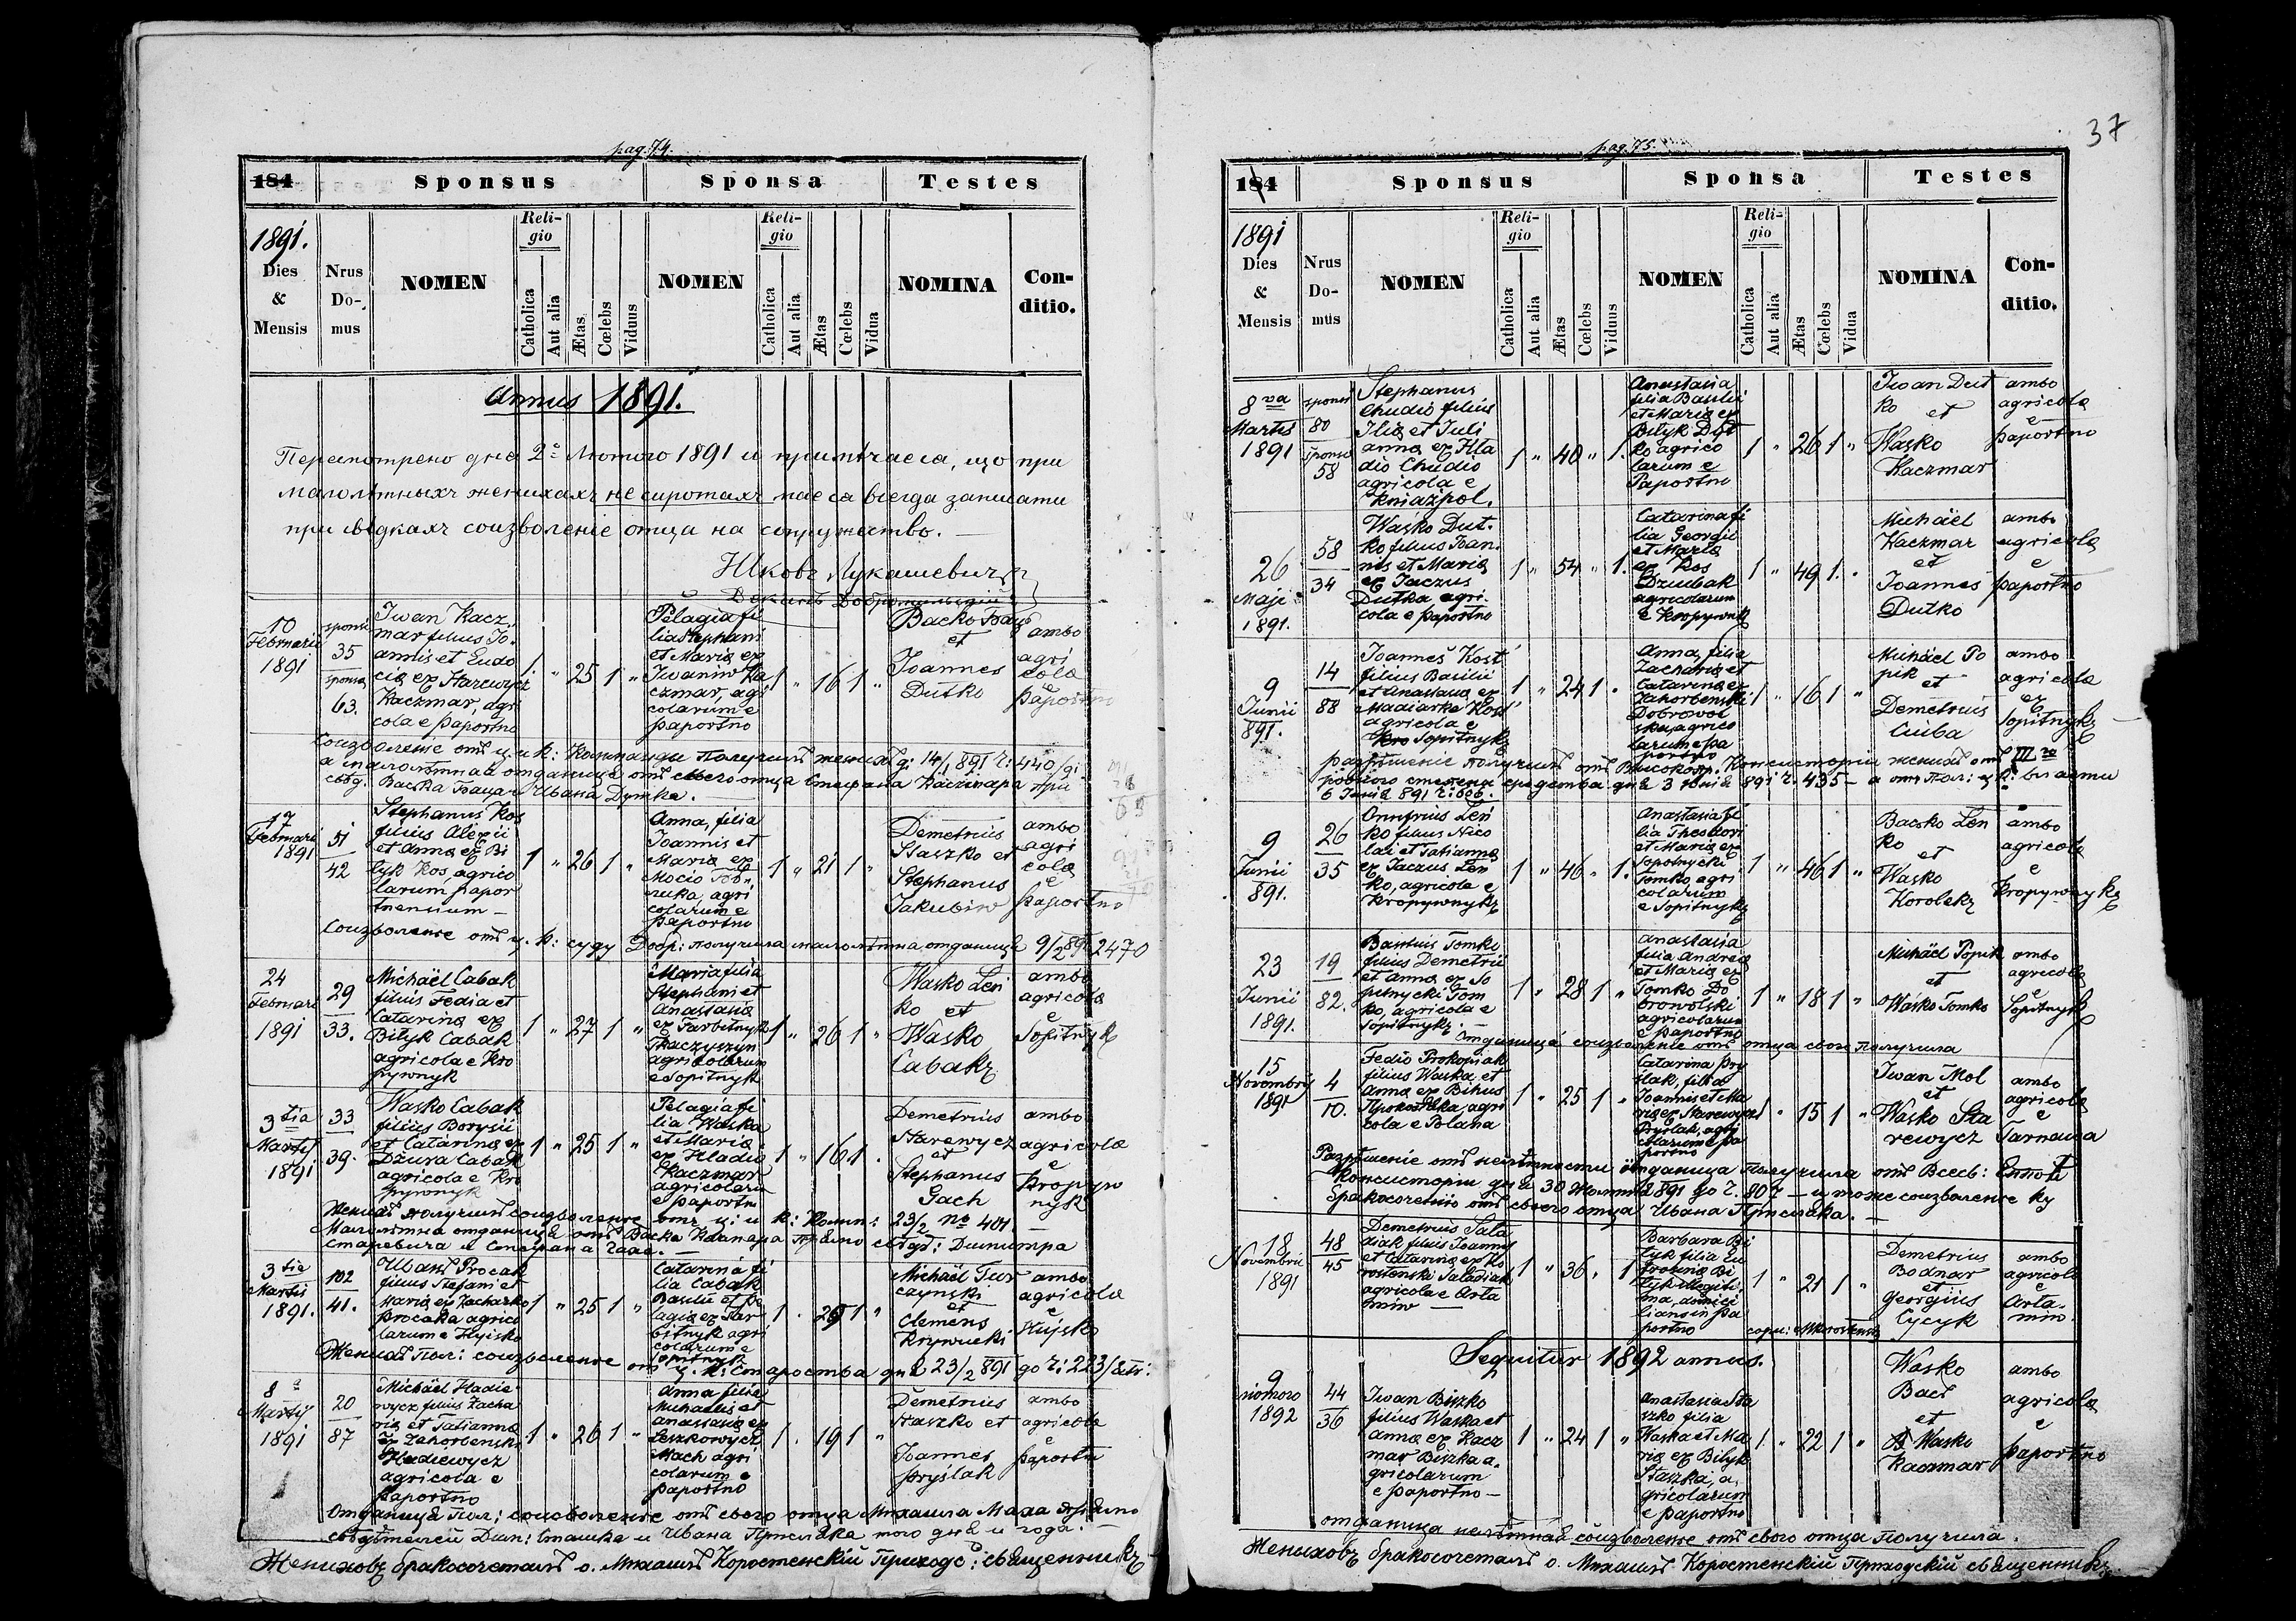 pag. 74.
184 Sponsus Sponsa Testes
1891.
Dies & Mensis
Nrus Do- mus
NOMEN
Reli- gio
Catholica
Aut alia
Ætas
Cœlebs
Viduus
NOMEN
Reli- gio
Catholica
Aut alia
Ætas
Cœlebs
Vidua
NOMINA
Con- ditio.
Annus 1891.
Пересмотрено дня 2º Лютого 1891 и примѣчаеся, що при
малолѣтныхъ женихахъ не сиротахъ мае ся всегда записати
при свѣдкахъ соизволеніе отца на супружество. —
Яковъ Лукашевичъ
Деканъ Добромильскій
10
Februarii
1891
sponsi
35
sponsa
63.
Iwan Kacz
mar filius Jo
annis et Eudo
cia ex Starewycz
Kaczmar, agri
cola e Paportno
1 " 25 1 "
Pelagia fi
lia Stephani
et Maria ex
Iwaniw Ka
czmar, agri
colarum e
Paportno
1 " 16 1 "
Backo
et
Joannes
Dutko
ambo
agri
colæ
e
Paportno
Соизволеніе отъ ц. и к: Комманды получилъ женихъ д: 14/1 891 ч: 440/91
а малолѣтная отданица отъ своего отца Стефана Качмара при
свѣд. Васька Баца и Ивана Дутка.
17
Februarii
1891
51
42
Stephanus Kos
filius Alexii
et Anna ex Bi
lyk Kos, agrico
larum Papor
tnensium —
1 " 26 1 "
Anna, filia
Joannis et
Maria ex
Mocio
agri
colarum e
Paportno
1 " 21 1 "
Demetrius
Staszko et
Stephanus
Jakubiw
ambo
agri
colæ
e
Paportno
Соизволеніе отъ ц. к: суду Добр: получила малолѣтна отданица 9/2 891 2470
24
Februarii
1891
29
33.
Michaël Cabak
filius Fedia et
Catarina ex
Bilyk Cabak
agricola e Kro
pywnyk
1 " 27 1 "
Maria filia
Stephani et
Anastasia
ex Tarbitnyk
Tkaczyszyn
agricolarum
e Sopitnyk
1 " 26 1 "
Wasko Len
ko et
Wasko
Cabak
ambo
agricolæ
e
Sopitnyk
3tia
Martij
1891
33
39.
Wasko Cabak
filius Borysii
et Catarina ex
Dziura Cabak
agricola e Kro
pywnyk
1 " 25 1 "
Pelagia fi
lia Waska
et Maria
ex Hladio
Kaczmar
agricolarum
e Paportno
1 " 16 1 .
Demetrius
Starewycz
et
Stephanus
Gach
ambo
agricolæ
e
Kropyw
nyk
Женихъ получилъ соизволеніе отъ ц: и к: Комн: 23/2 № 401 —
Малолѣтна отданица отъ Васка Качмара при свѣд: Димитра
Старевича и Стефана Гаха. —
3tia
Martis
1891.
102
41.
Иванъ Procak
filius Stefani et
Maria ex Zacharko
Procaka agrico
larum e Hujsko
1 " 25 1 "
Catarina fi
lia Cabak
Basilii et Pe
lagia ex Tar
bitnyk agri
colarum e
Sopitnyk
Michaël Tur
czynski
et
Clemens
Krywucki
ambo
agricolæ
e
Hujsko
Женихъ Пол: соизволеніе отъ ц. к: Староства дня 23/2 891 до ч: 223/
8a
Martij
1891
20
87
Michaël Hladie
wycz filius Zacha
ria et Tatianna
ex Zahorbenski
Hladiewycz
agricola e
Paportno
1 " 26 1 "
Anna filia
Michaelis et
Anastasia ex
Leszkowycz
Mach agri
colarum e
Paportno
1 . 19 1 "
Demetrius
Staszko et
Joannes
Pryslak
ambo
agricolæ
e
Paportn
Отданица Пол: соизволеніе отъ своего отца Михаила Маха при
свѣдѣтелей Дим: Сташка и Ивана Присляка того дня и года.
Жениховъ бракосочеталъ о. Михаилъ Коростенскій Приходс: священникъ
37
pag. 75.
184 Sponsus Sponsa Testes
1891
Dies & Mensis
Nrus Do- mus
NOMEN
Reli- gio
Catholica
Aut alia
Ætas
Cœlebs
Viduus
NOMEN
Reli- gio
Catholica
Aut alia
Ætas
Cœlebs
Vidua
NOMINA
Con- ditio.
8va
Martis
1891
sponsi
80
sponsa
58
Stephanus
Chudio filius
Ilia et Juli
anna ex Hla
dio Chudio
agricola e
Kniazpol.
1 " 40 " 1.
Anastasia
filia Basilii
et Maria ex
Bilyk Dut
ko agrico
larum e
Paportno
1 " 26 1 "
Iwan Dut
ko et
Wasko
Kaczmar
ambo
agricolæ
e
Paportno
26
Maji
1891.
58
34
Wasko Dut
ko filius Joan
nis et Maria
ex Jaczus
Dutka agri
cola e Paportno
1 " 54 " 1.
Catarina fi
lia Georgii
et Maria
ex Kos
Dziubak
agricolarum
e Kropywnik
1 " 49 1 .
Michäel
Kaczmar
et
Joannes
Dutko
ambo
agricolæ
e
Paportno
9
Junii
891.
14
88
Joannes Kost
filius Basilii
et Anastasia ex
Madiarka Kost
agricola e
Sopitnyk
1 " 24 1 .
Anna filia
Zacharia et
Catarina ex
Zahorbenski
Dobrowol
ska, agrico
larum e Pa
portno
1 " 16 1 "
Michäel Po
pik et
Demetrius
Ciuba
ambo
agricolæ
ex
Sopitnyk
разрѣшеніе получилъ отъ Высокопр. Консисторіи женихъ отъ III го
рового степеня сродства дня 3 Юнія 891 ч. 435 —
6 Junia 891 ч: 606.
9
Junii
891.
26
35
Onufrius Len
ko filius Nico
lai et Tatianna
ex Jaczus Len
ko, agricola e
Kropywnyk
1 " 46 " 1.
Anastasia fi
lia Theodori
et Maria ex
Sopotnycki
Tomko, agri
colarum
e Sopitnyk
1 " 46 1 "
Bacsko Len
ko
et
Wasko
Korolek
ambo
agricolæ
e
Kropywnyk
23
Junii
1891.
19
82.
Basilius Tomko
filius Demetrii
et Anna ex So
pitnycki Tom
ko, agricola e
Sopitnyk. —
1 " 28 1 "
Anastasia
filia Andrea
et Maria ex
Tomko Do
browolski
agricolarum
e Paportno
1 " 18 1 "
Michäel Popik
et
Wasko Tomko
ambo
agricolæ
e
Sopitnyk
Отданица соизволеніе отъ отца свого получила
15
Novembrij
1891
4
10.
Fedio Prokopiak
filius Waska et
Anna ex Bihus
agri
cola e Polana
1 " 25 1 "
Catarina Pry
slak, filia
Joannis et Ma
ria ex Starewycz
Pryslak, agri
colarum e Pa
portno
1 " 15 1 "
Iwan Mol
et
Wasko Sta
rewycz
ambo
agricolæ
e
Tarnawa
Разрѣшеніе отъ нелѣтности отданица получила отъ Всесв: Еппской
Консисторіи дня 30 Жолтня 891 до ч. 807 — и тоже соизволеніе ку
бракосоченію отъ своего отца Ивана Присляка. —
18
Novembrii
1891
48
45
Demetrius Sala
diak filius Joannis
et Catarina ex Ko
rostenski Saladiak
agricola e Arta
miw —
1 " 36 . 1
Barbara Bi
lyk filia Eu
frosina Bi
lyk illegiti
ma, domici
lians in Pa
portno
1 " 21 1 "
Demetrius
Bodnar
et
Georgius
Cycyk
ambo
agricolæ
e
Arta-
miw.
Sequitur 1892 annus.
9
1892
44
36
Iwan Biszko
filius Waska et
Anna ex Kacz
mar Biszka a
gricolarum
e Paportno —
1 " 24 1 "
Anastasia Sta
szko filia
Waska et Ma
ria ex Bilyk
Staszka, a
gricolarum
e Paportno
1 . 22 1 "
Wasko
Bact
et
Wasko
Kaczmar
ambo
agricolæ
e
Paportno
отданица нелѣтная соизволеніе отъ свого отца получила.
Жениховъ бракосочеталъ о. Михаилъ Коростенскій Приходскій священникъ.